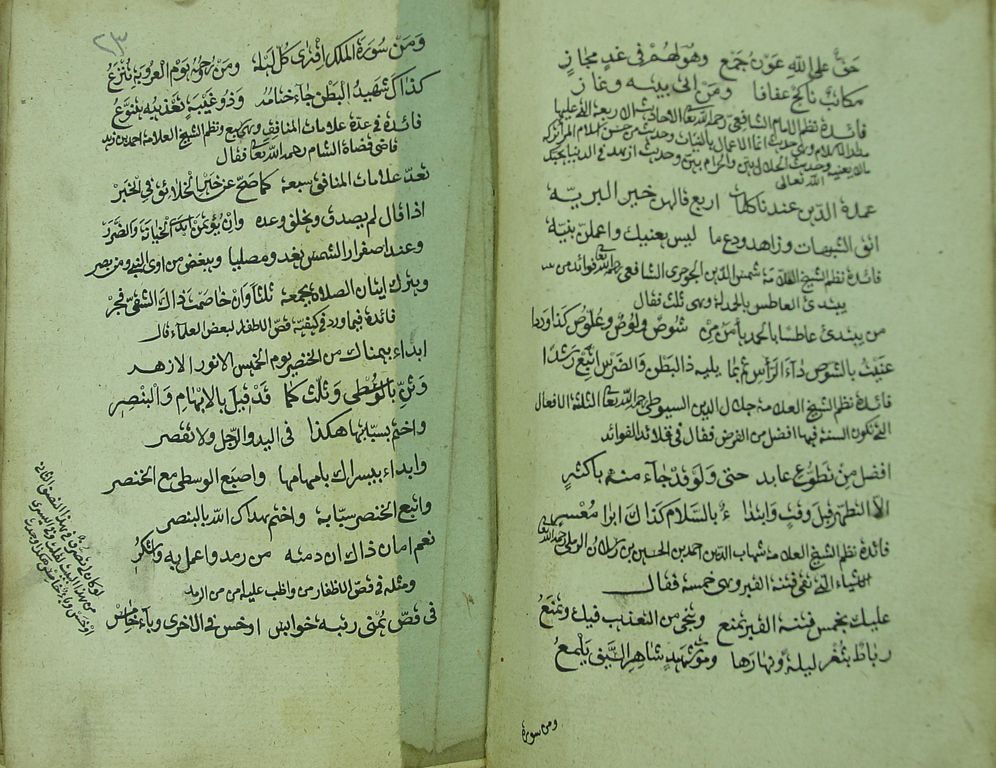 حق على الله عون جمع وهو لهم في غد مجاز
مكاتب ناكح عفافا ومن اتى بيته وغاز
فائدة نظم الامام الشافعي رحمه الله تعا الاحاديث الاربعة التي عليها
مدار الاسلام وهي حديث انما الاعمال بالنيات وحديث من حسن اسلام المرء تركه
مالا يعنيه وحديث الحلال بين والحرام بين وحديث ازهد في الدنيا يحبك
الله تعالى
عمدة الدين عندنا كلمات اربع قالهن خير البريه
اتق الشبهات وازهد ودع ما ليس يعنيك واعملن بنيه
فائدة نظم الشيخ العلامة شمس الدين الجوجري الشافعي رحمه الله تعا فوائد من
يبتدئ العاطس بالحمدلة وهي ثلث فقال
من يبتدئ عاطسا بالحمد يأمن من شوص ولوص وعلوص كذا وردا
عنيت بالشوص داء الرأس ثم بما يليه ذا البطن والضرس اتبع رشدا
فائدة نظم الشيخ العلامة جلال الدين السيوطي رحمه الله تعا الثلثة الافعال
التي تكون السنة فيها افضل من الفرض فقال في قلائد الفوائد
افضل من تطوع عابد حتى ولو قد جاء منه باكثر
الا التطهر قبل وقت وابتدا ء بالسلام كذاك ابرا معسر
فائدة نظم الشيخ العلامة شهاب الدين احمد بن الحسين بن رسلان الرملي رحمه الله تعا
الاشياء التي تقي فتنة القبر وهي خمسة فقال
عليك بخمس فتنة القبر تمنع وتنجي من التعذيب فيك وتمنع
رباط بثغر ليلة ونهارها وموت شهيد شاهر السيف يلمع
ومن سورة
٢٣
ومن سورة الملك اقترى كل ليلة ومن روحه يوم العروبة تنزع
كذاك شهيد البطن جاء ختامه وذو غيبة تعذيبه يتنوع
فائدة في عدة علامات المنافق وهي سبع ونظم الشيخ العلامة احمد بن زيد
قاضي قضاة الشام رحمه الله تعا فقال
تعد علامات المنافق سبعة كما صح عن خير الخلائق في الخبر
اذا قال لم يصدق ويخلف وعده وان يؤتمن ابدا الخيانة والضرر
وعند اصفرار الشمس يغدو مصليا ويبغض من اوى النبي ومن نصر
ويترك اتيان الصلاة بجمعة ثلثا وان خاصمت ذاك الشقي فجر
فائدة فيما ورد في كيفية قص الاظفار لبعض العلماء قال
ابداء بيمناك من الخنصر يوم الخميس الانور الازهر
وثن بالوسطى وثلث كما قد قيل بالابهام والبنصر
واختم بسبابتها هكذا في اليد والرجل ولا تقصر
وابداء بيسراك بابهامها واصبع الوسطى مع الخنصر
واتبع الخنصر سبابة واختم هداك الله بالبنصر
نعم امان ذاك ان دمته من رمد واعمل به واشكر
ومثله في قص الاظفار من واظب عليه امن من الرمد
في قص يمنى رتبه خوابس اوخس في الاخرى وباء خامس